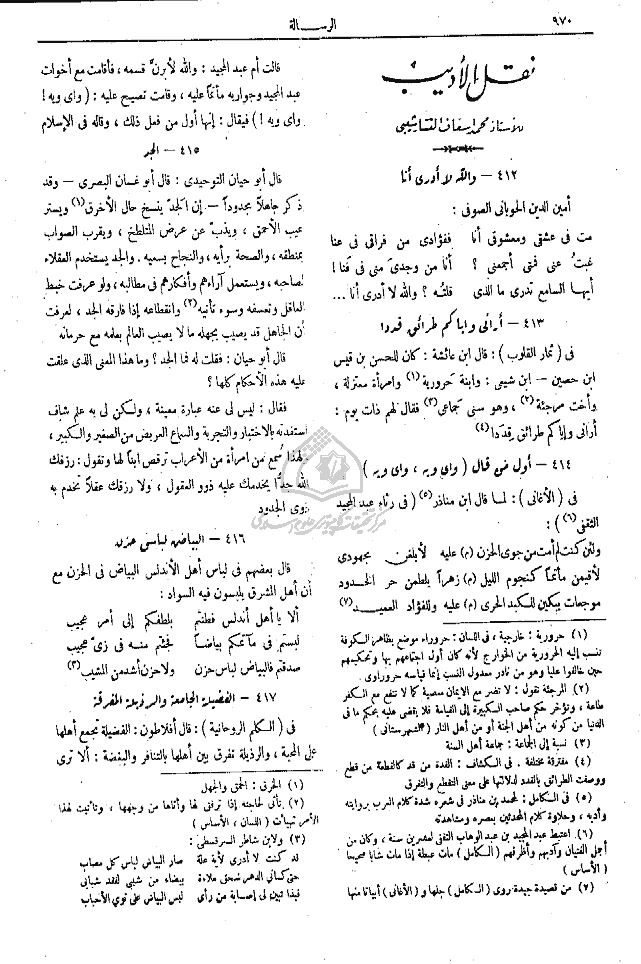 ٩٧٠
الرسالة
نقل الأديب
للأستاذ محمد إسعاف النشاشيبي
٤١٢ – والله لا أدرى أنا
أمين الدين الجوبانى الصوفى :
مت فى عشقى ومعشوقى أنا ففؤادى من فراقى فى عنا
غبتُ عنى فمتى أجمعنى ؟ أنا من وجدىَ منى فى فنا !
أيها السامع تدرى ما الذى قلته ؟ والله لا أدرى أنا ...
٤١٣ – أرانى وإياكم طرائق قددا
فى (ثمار القلوب) : قال ابن عائشة : كان للحسن بن قيس
ابن حصين – ابن شيعى : وابنة حرورية (١) وامرأة معتزلة ،
وأخت مرجئة (٢) ، وهو سنى جماعى (٣) فقال لهم ذات يوم :
أرانى وإياكم طرائق قِدَدا (٤)
٤١٤ – أول من قال (واى ويه ، واى ويه)
فى (الأغانى) : لما قال ابن مناذر (٥) (فى رثاء عبد المجيد
الثقفى (٦)) :
ولئن كنت لم أمت من جوى الحزن (م) عليه لأبلغن مجهودى
لأقيمن مأتماً كنجوم الليل (م) زهراً يلطمن حر الخدود
موجعات يبكين للكبد الحرى (م) عليه وللفؤاد العميد (٧)
(١) حرورية : خارجية ، فى اللسان : حروراء موضع بظاهر الكوفة
تنسب إليه الحرورية من الخوارج لأنه كان أول اجتماعهم بها وتحكيمهم
حين خالفوا عليا وهو من نادر معدول النسب إنما قياسه حروراوى
(٢) المرجئة تقول : لا تضر مع الايمان معصية كا لا تنفع مع الكفر
طاعة ، وتؤخر حكم صاحب الكبيرة إلى القيامة فلا يقضى عليه بحكم ما فى
الدنيا من كونه من أهل الجنة أو من أهل النار (الشهرستانى)
(٣) نسبة إلى الجماعة : جماعة أهل السنة
(٤) متفرقة مختلفة . فى الكشاف : القدة من قد كالقطعة من قطع
ووصفت الطرائق بالقدد لدلالتها على معنى التقطع والتفرق
(٥) فى الكامل : لمحمد بن مناذر فى شعره شدة كلام العرب بروايته
وأدبه ، وحلاوة كلام المحدثين بعصره ومشاهدته
(٦) اعتبط عبد المجيد بن عبد الوهاب الثقفى لعشرين سنة ، وكان من
أجمل الفتيان وآدبهم وأظرفهم (الكامل) مات عبطة إذا مات شابا صحيحا
(الأساس)
(٧) من قصيدة جيدة روى (الكامل) جلها و (الأغانى) أبياتا منها
قالت أم عبد المجيد : والله لأبرنّ قسمه ، فأقامت مع أخوات
عبد المجيد وجواريه مأتماً عليه ، وقامت تصيح عليه : (واى ويه !
واى ويه !) فيقال : إنها أول من فعل ذلك ، وقاله فى الإسلام
٤١٥ – الجد
قال أبو حيان التوحيدى : قال أبو غسان البصرى – وقد
ذكر جاهلاً مجدوداً – إن الجدّ ينسخ حال الأخرق (١) ويستر
عيب الأحمق ، ويذبّ عن عرض المتلطخ ، ويقرب الصواب
بمنطقه ، والصحة برأيه ، والنجاح بسعيه . والجد يستخدم العقلاء
لصاحبه ، ويستعمل آراءهم وأفكارهم فى مطالبه ، ولو عرفت خبط
العاقل وتعسفه وسوء تأتيه (٢) وانقطاعه إذا فارقه الجد ، لعرفت
أن الجاهل قد يصيب بجهله ما لا يصيب العالم بعلمه مع حرمانه
قال أبو حيان : فقلت له فما الجد ؟ وما هذا المعنى الذى علقت
عليه هذه الأحكام كلها ؟
فقال : ليس لى عنه عبارة معينة ، ولكن لى به علم شاف
استفدته بالاختبار والتجربة والسماع العريض من الصغير والكبير ،
ولهذا سُمع من امرأة من الأعراب ترقص ابناً لها وتقول : رزقك
الله جدًّا يخدمك عليه ذوو العقول ، ولا رزقك عقلاً تخدم به
ذوى الجدود
٤١٦ – البياض لباسى حزنه
قال بعضهم فى لباس أهل الأندلس البياض فى الحزن مع
أن أهل المشرق يلبسون فيه السواد :
ألا يا أهل أندلس فطنتم بلطفكم إلى أمر عجيب
لبستم فى مآتمكم بياضاً فجئتم منه فى زىّ عجيب
صدقتم فالبياض لباس حزن ولا حزن أشد من المشيب (٣)
٤١٧ – الفضيلة الجامعة والرذيلة المفرقة
فى (الكلم الروحانية) : قال أفلاطون : الفضيلة تجمع أهلها
على المحبة ، والرذيلة تفرق بين أهلها بالتنافر والبغضة : ألا ترى
(١) الخرق : الحمق والجهل
(٢) تأتى لحاجته إذا ترفق لها وأتاها من وجهها ، وتأتيت لهذا
الأمر تهيأت (اللسان ، الأساس)
(٣) ولابن شاطر السرقسطى :
قد كنت لا أدرى لأية علة صار البياض لباس كل مصاب
حتى كسانى الدهر سحق ملاءة بيضاء من شيبى لفقد شبابى
فبذا تبين لى إصابة من رأى لبس البياض على توى الأحباب